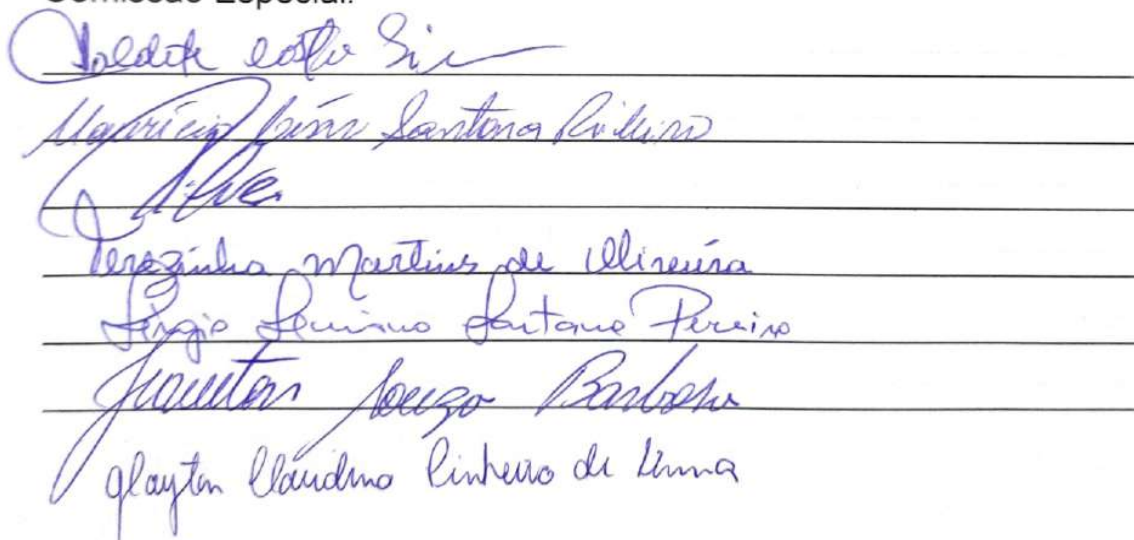 Comissão Especial.
Valdete Costa
Maurício Santana Ribeiro
Silva
Terezinha Martins de Oliveira
Sérgio Santana Pereira
Souza Barbosa
Glayton Claudino Pinheiro de Lima